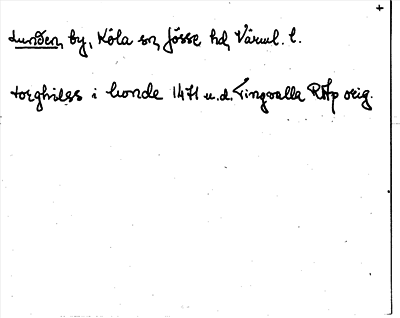 +
Lunden, by, Köla sn, Jösse hd, Värml. l.
torghilss i londe 1471 u.d. Tingvalla RAp orig.